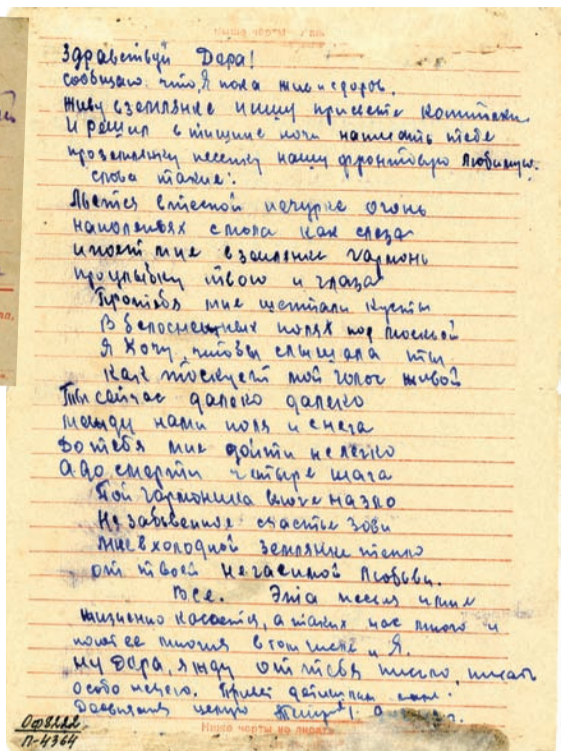 Здравствуй Дора!
сообщаю что, Я пока жив и сдоров.
живу в землянке пишу при свете коптилки
И решил в тишине ночи написать тебе
про землянку песенку нашу фронтовую любимую.
слова такие:
Льется в тесной печурке огонь
на поленьях смола как слеза
и поет мне в землянке гармонь
про улыбку твою и глаза
Про тебя мне шептали кусты
В белоснежных полях под Москвой
Я хочу чтобы слышала ты
Как тоскует мой голос живой
Ты сейчас далеко далеко
между нами поля и снега
До тебя мне дойти не легко
А до смерти четыре шага
Пой гармоника вьюге назло
Незабвенное счастье зови
мне в холодной землянке тепло
от твоей негасимой любьви.
Все. Эта песня и мне
жизненно касается, а таких нас много и
поют ее многия в том числе и Я.
ну Дора, я жду от тебя письмо, писать
особо нечего. Привет
Досвиданя целую
Ниже черты не писать
Оф8222
П-4364